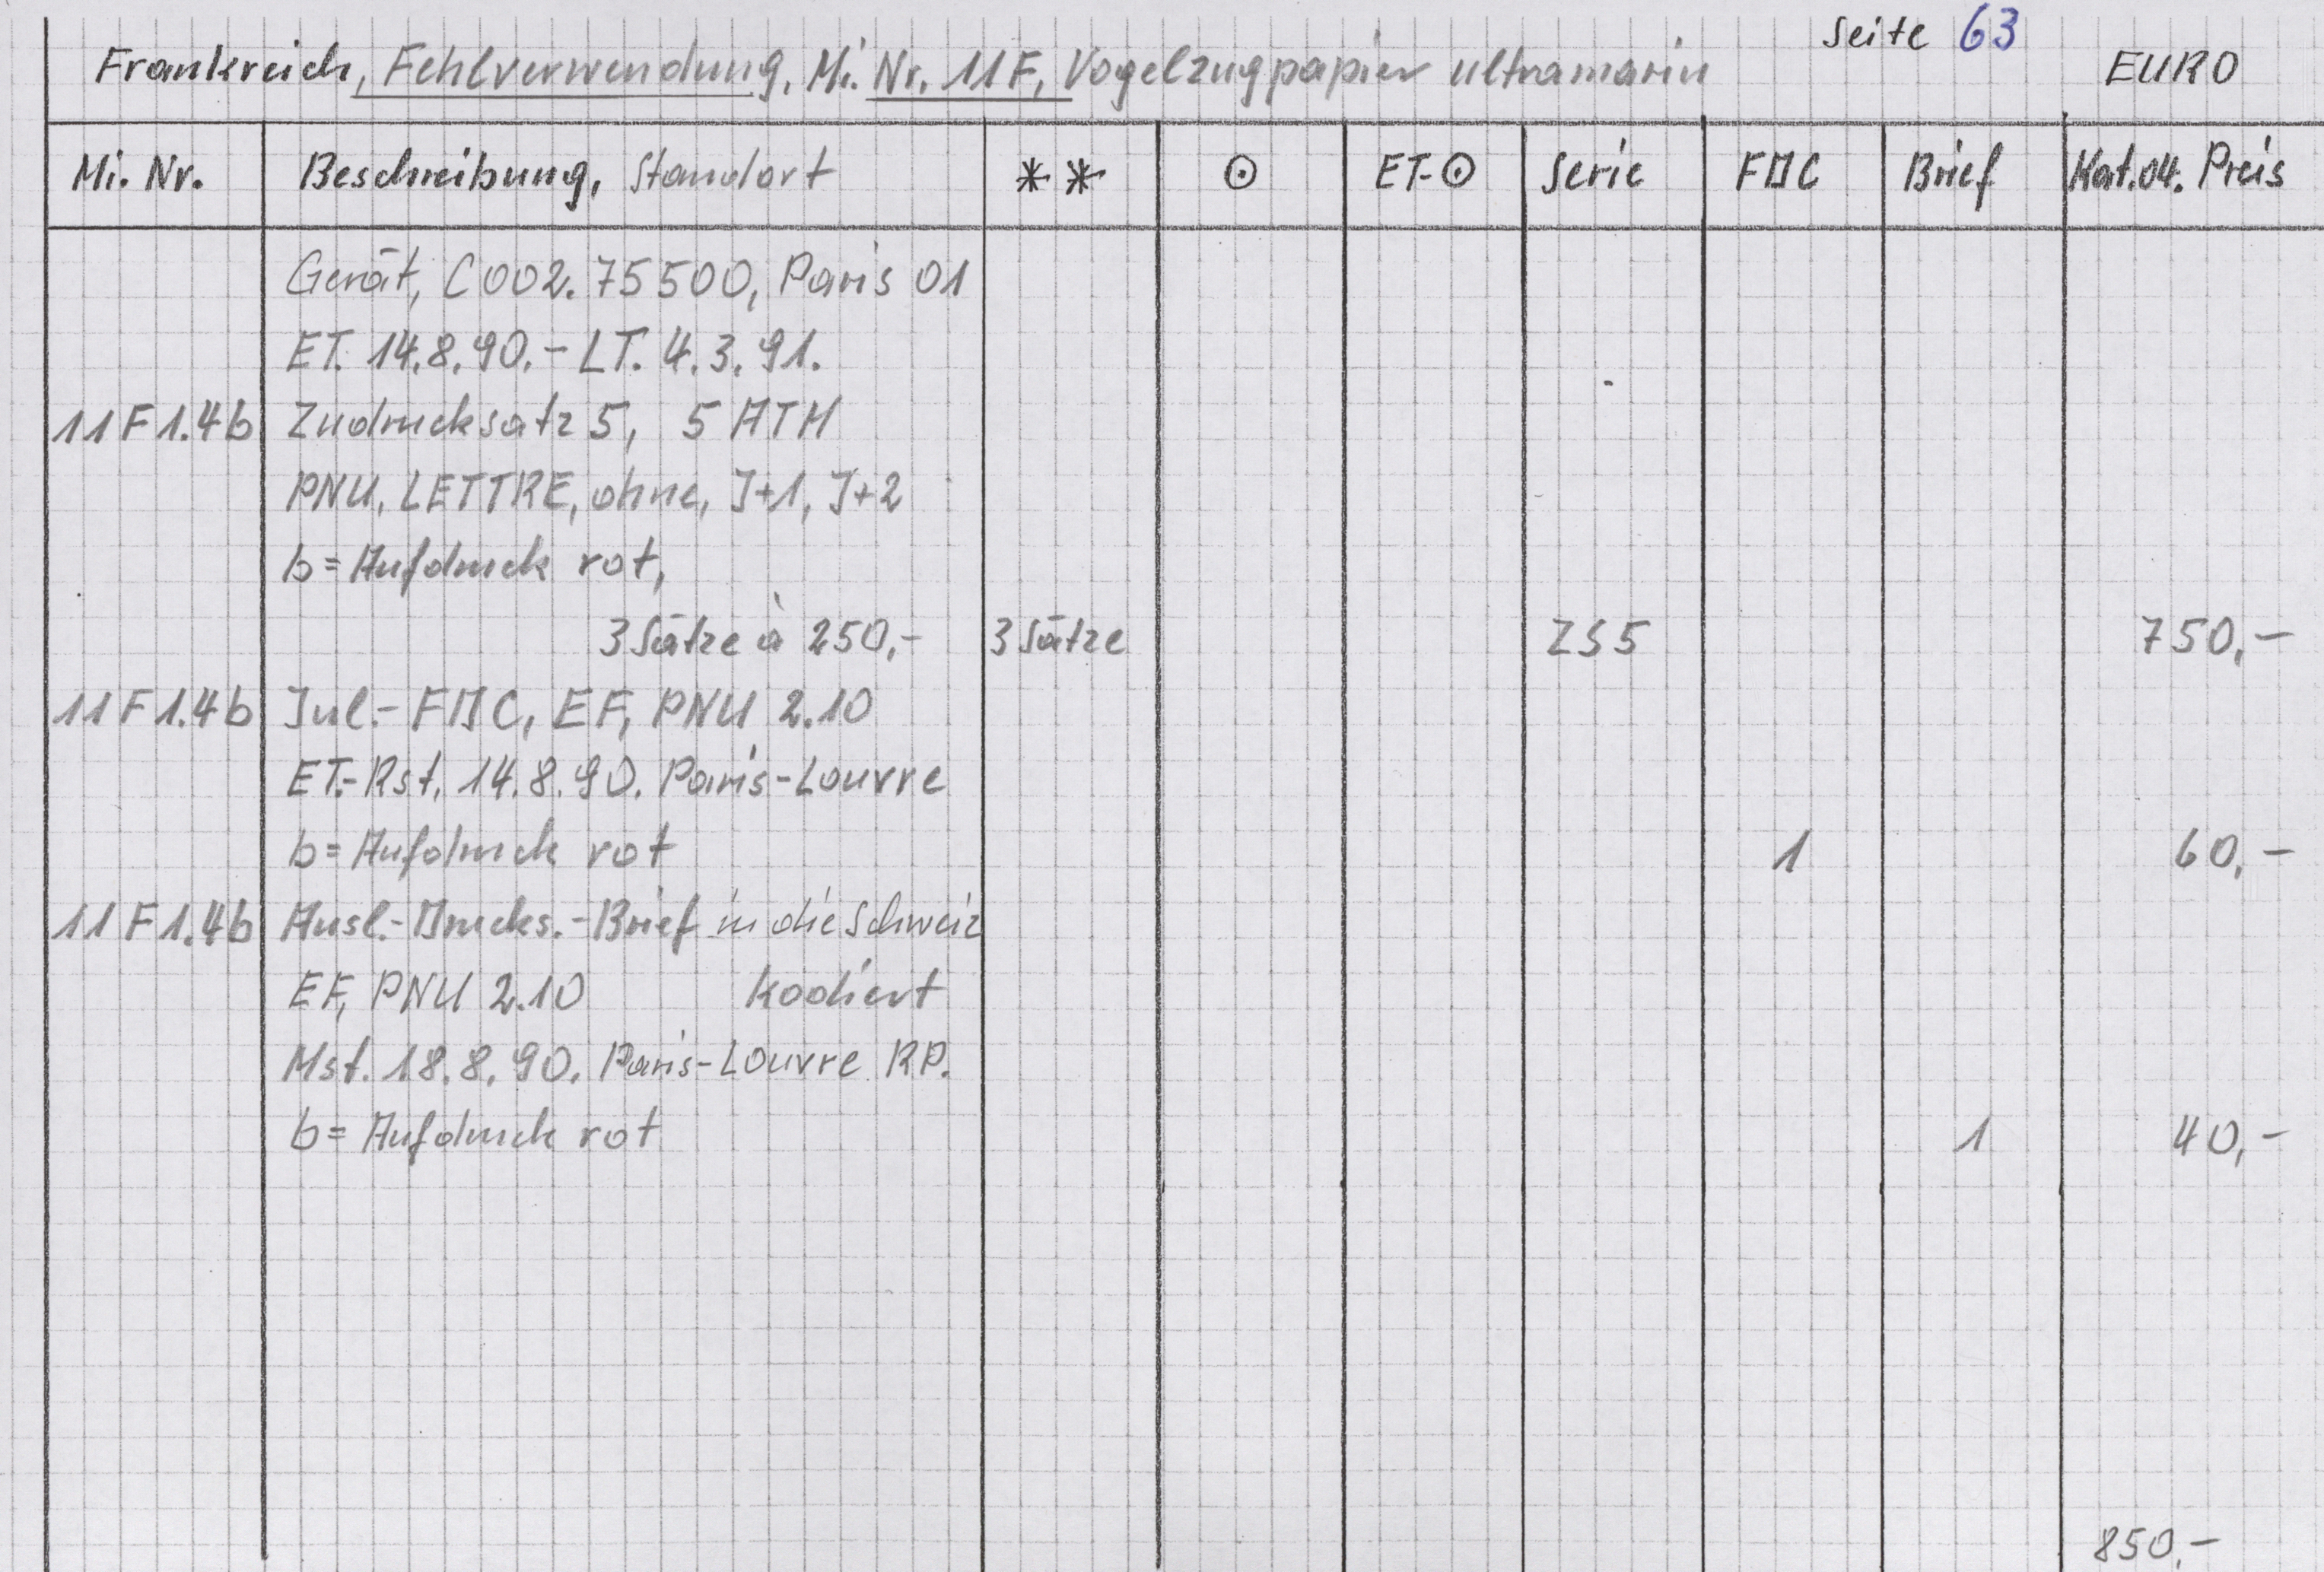 Seite 63
Frankreich, Fehlverwendung, Mi. Nr. 11F, Vogelzugpapier ultramarin EURO
Mi. Nr. Beschreibung, Standort ** ⊙ ET-⊙ Serie FDC Brief Kat.04. Preis
Gerät, C002.75500, Paris 01
ET. 14.8.90.- LT. 4.3.91.
11F1.4b Zudrucksatz 5, 5 ATM
PNU, LETTRE, ohne, J+1, J+2
b=Aufdruck rot,
3 Sätze à 250,- 3 Sätze ZS5 750,-
11F1.4b Jul.-FDC, EF, PNU 2.10
ET.-Rst. 14.8.90. Paris-Louvre
b=Aufdruck rot 1 60,-
11F1.4b Ausl.-Drucks.-Brief in die Schweiz
EF, PNU 2.10 kodiert
Mst. 18.8.90. Paris-Louvre RP.
b= Aufdruck rot 1 40,-
850,-